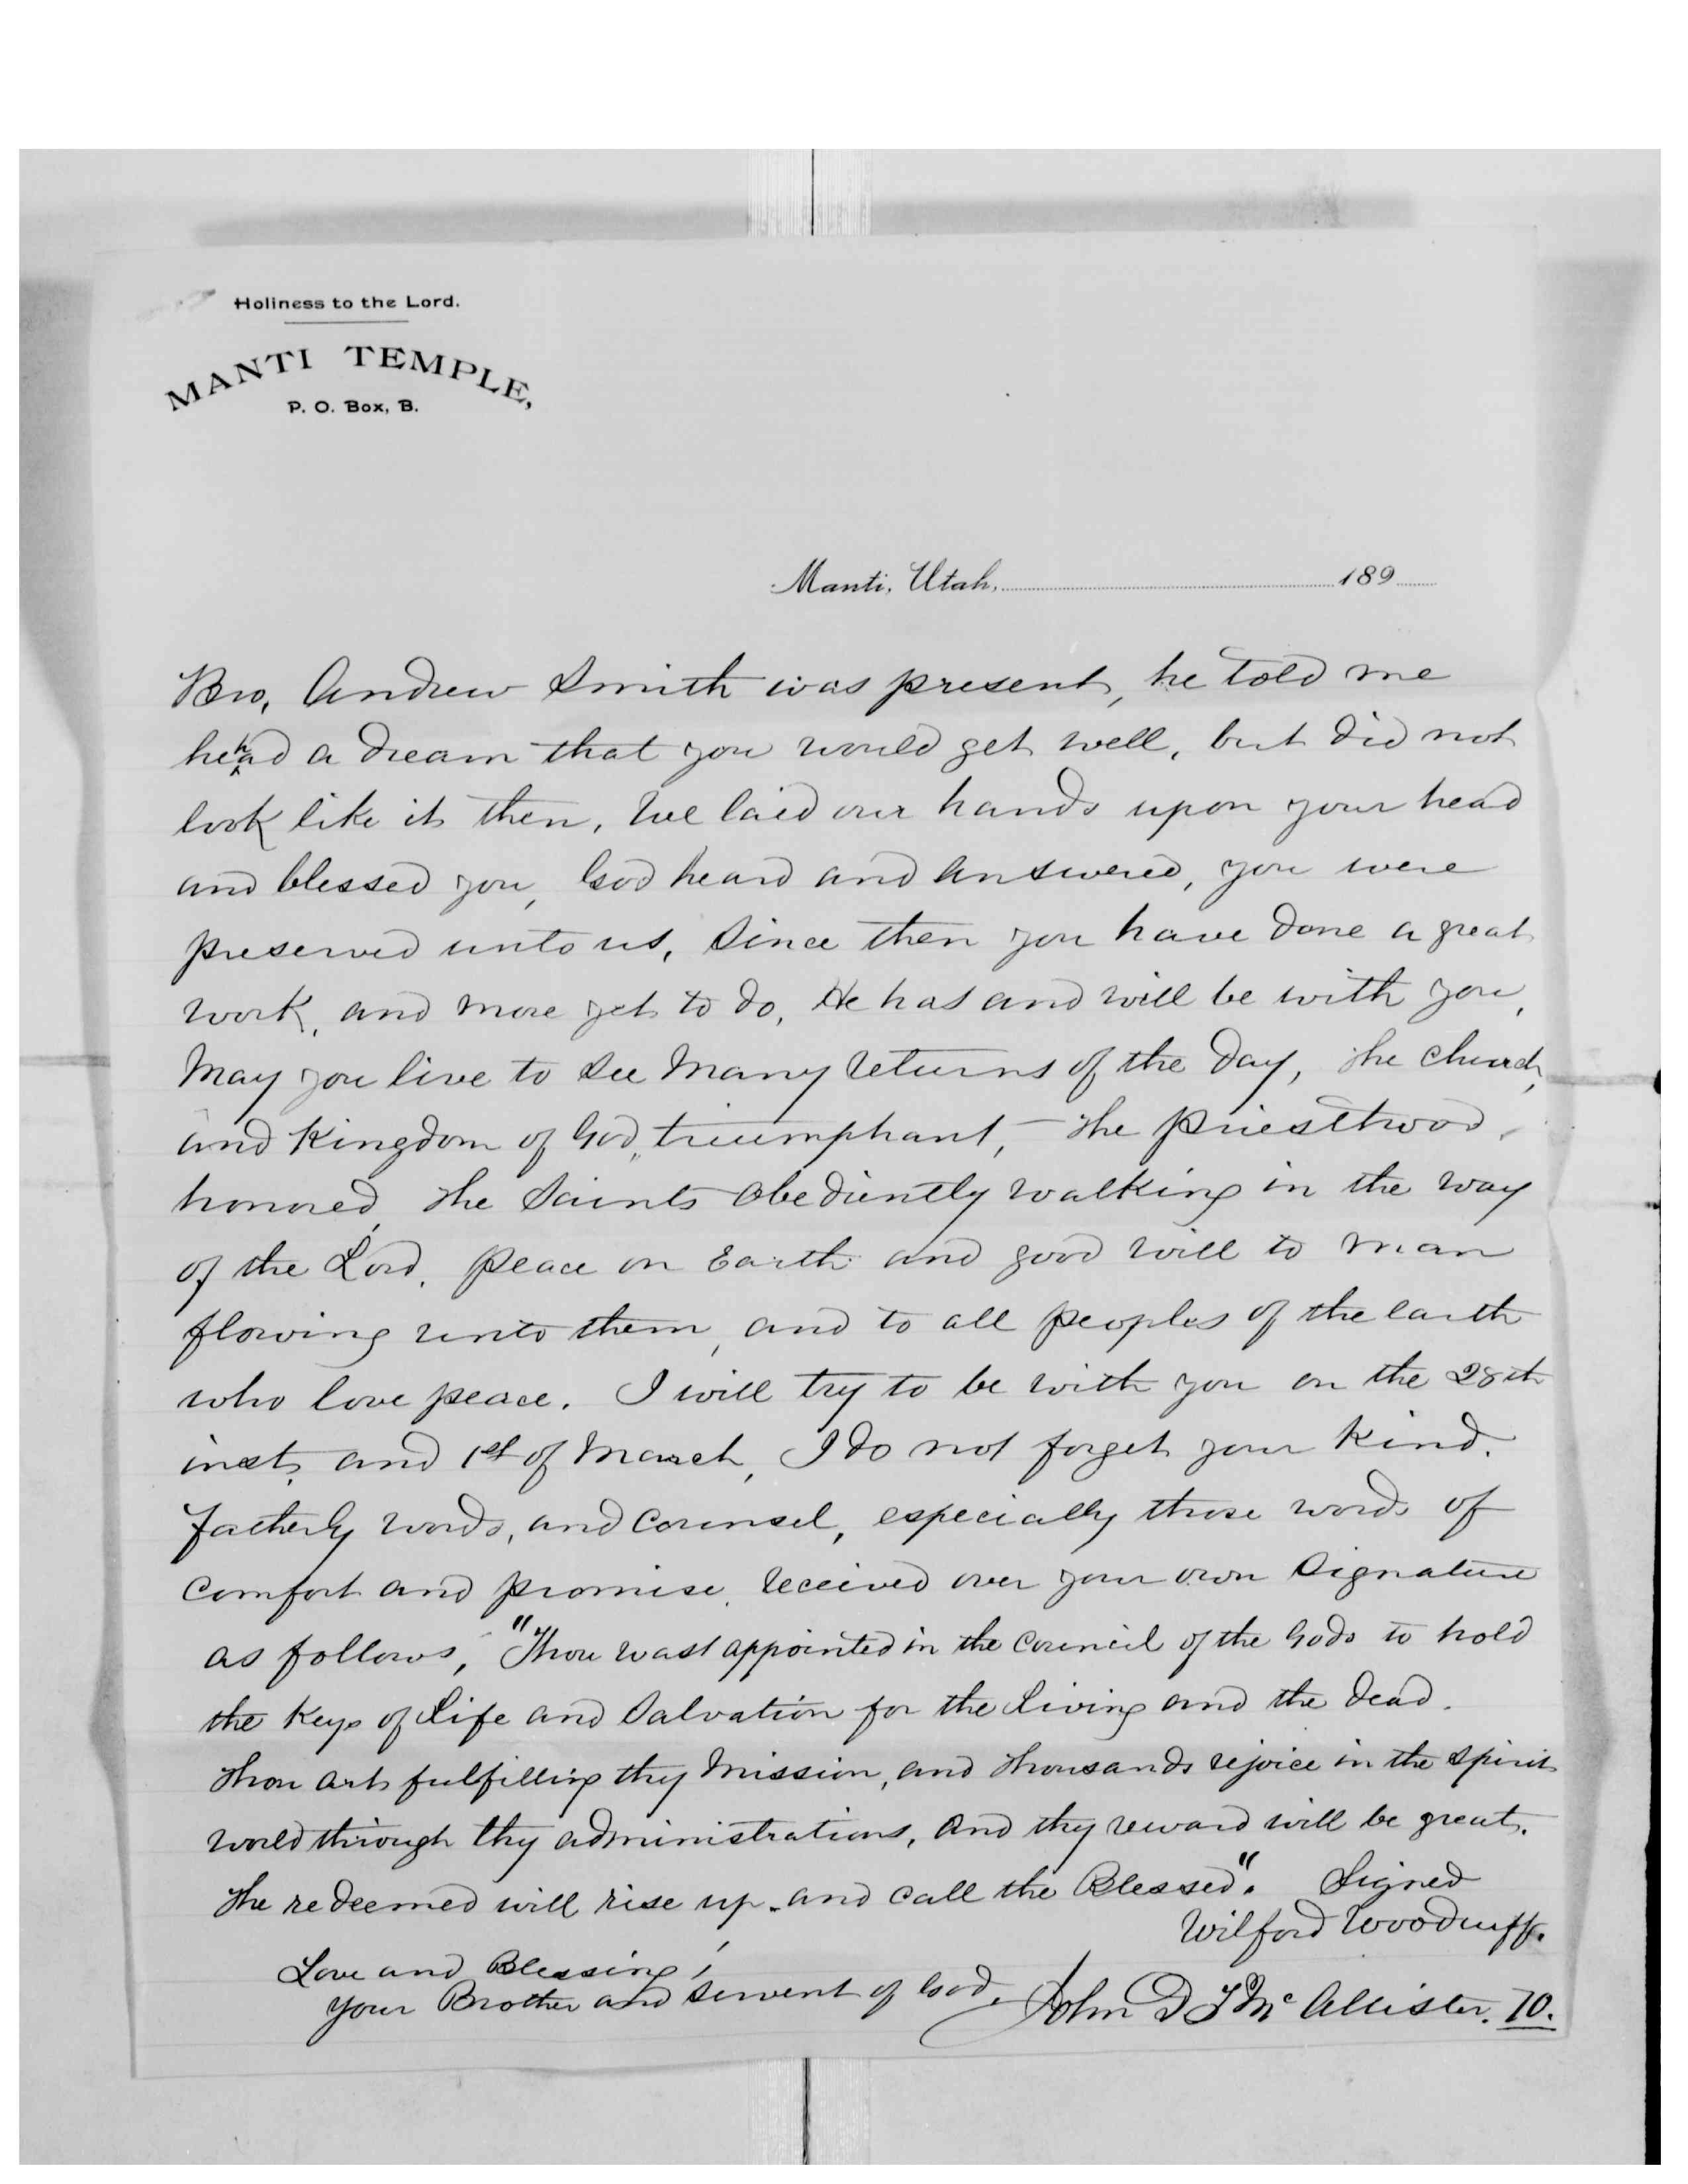 Holiness to the Lord.
MANTI TEMPLE,
P. O. Box, B.
Manti, Utah, 189
Bro, Andrew Smith was present, he told me
he had a dream that you would get well, but did not
look like it then, We laid our hands upon your head
and blessed you, God heard and answered, you were
preserved unto us, Since then you have done a great
work, and more yet to do, He has and will be with you,
May you live to see Many returns of the day, The church,
and Kingdom of God, triumphant, – The Priesthood,
honored, The Saints Obediently walking in the way
of the Lord, Peace on Earth and good will to man
flowing unto them, and to all peoples of the earth
who love peace. I will try to be with you on the 28th
inst, and 1st of March, I do not forget your kind,
fatherly words, and counsel, especially those words of
comfort and promise, received over your own signature
as follows, "Thou wast appointed in the Council of the Gods to hold
the Keys of Life and Salvation for the Living and the dead.
Thou art fulfilling thy Mission, and Thousands rejoice in the Spirit
world through thy administrations, and thy reward will be great.
The redeemed will rise up and call the Blessed". Signed
Wilford Woodruff.
Love and Blessing,
Your Brother and servent of God, John D T McAllister. 70.